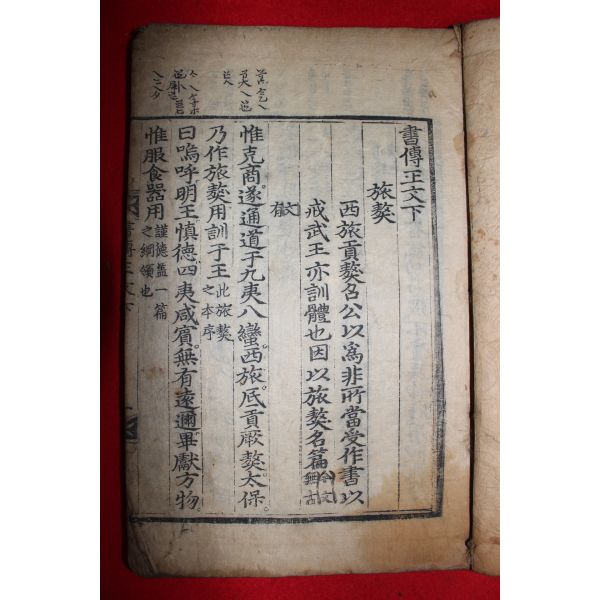 書傳正文下
旅獒
西旅貢獒召公以爲非所當受作書以
戒武王亦訓體也因以旅獒名篇今文無古
文有
惟克商遂通道于九夷八蠻西旅底貢厥獒太保
乃作旅獒用訓于王此旅獒之本序
曰嗚呼明王慎德四夷咸賓無有遠邇畢獻方物
惟服食器用謹德蓋一篇之綱領也
書傳正文下